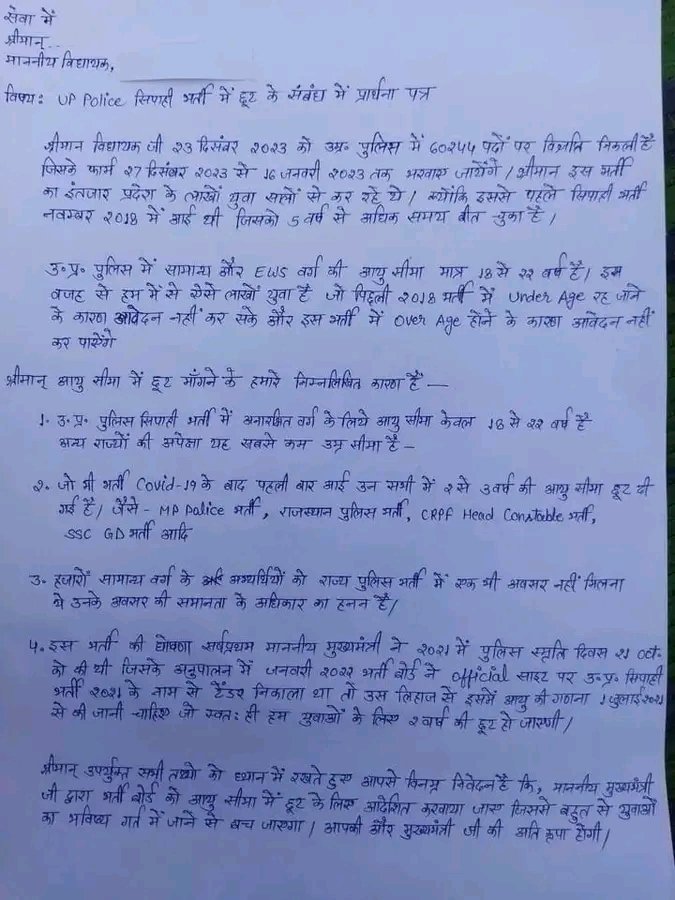 सेवा में
श्रीमान्..
माननीय विधायक,
विषय: UP Police सिपाही भर्ती में छूट के संबंध में प्रार्थना पत्र
श्रीमान विधायक जी 23 दिसंबर 2023 को उ०प्र० पुलिस में 60244 पदों पर विज्ञप्ति निकली है
जिसके फार्म 27 दिसंबर 2023 से 16 जनवरी 2023 तक भरवाए जायेंगे। श्रीमान इस भर्ती
का इंतजार प्रदेश के लाखों युवा सालों से कर रहे थे। क्योंकि इससे पहले सिपाही भर्ती
नवम्बर 2018 में आई थी जिसको 5 वर्ष से अधिक समय बीत चुका है।
उ०प्र० पुलिस में सामान्य और EWS वर्ग की आयु सीमा मात्र 18 से 22 वर्ष है। इस
वजह से हम में से ऐसे लाखों युवा है जो पिछली 2018 भर्ती में Under Age रह जाने
के कारण आवेदन नहीं कर सके और इस भर्ती में Over Age होने के कारण आवेदन नहीं
कर पायेंगे
श्रीमान् आयु सीमा में छूट माँगने के हमारे निम्नलिखित कारण है —
1. उ०प्र० पुलिस सिपाही भर्ती में अनारक्षित वर्ग के लिये आयु सीमा केवल 18 से 22 वर्ष है
अन्य राज्यों की अपेक्षा यह सबसे कम उम्र सीमा है -
2. जो भी भर्ती Covid-19 के बाद पहली बार आई उन सभी में 2 से 3 वर्ष की आयु सीमा छूट दी
गई है। जैसे - MP Police भर्ती, राजस्थान पुलिस भर्ती, CRPF Head Constable भर्ती,
SSC GD भर्ती आदि
3. हजारों सामान्य वर्ग के अभ्यर्थियों को राज्य पुलिस भर्ती में एक भी अवसर नहीं मिलना
ये उनके अवसर की समानता के अधिकार का हनन है।
4. इस भर्ती की घोषणा सर्वप्रथम माननीय मुख्यमंत्री ने 2021 में पुलिस स्मृति दिवस 21 Oct.
को की थी जिसके अनुपालन में जनवरी 2022 भर्ती बोर्ड ने official साइट पर उ०प्र० सिपाही
भर्ती 2021 के नाम से टेंडर निकाला था तो उस लिहाज से इसमें आयु की गणना 1 जुलाई 2021
से की जानी चाहिए जो स्वत: ही हम युवाओं के लिए 2 वर्ष की छूट हो जाएगी।
श्रीमान् उपर्युक्त सभी तथ्यो को ध्यान में रखते हुए आपसे विनम्र निवेदन है कि, माननीय मुख्यमंत्री
जी द्वारा भर्ती बोर्ड को आयु सीमा में छूट के लिए आदेशित करवाया जाए जिससे बहुत से युवाओं
का भविष्य गर्त में जाने से बच जाएगा। आपकी और मुख्यमंत्री जी की अति कृपा होगी।